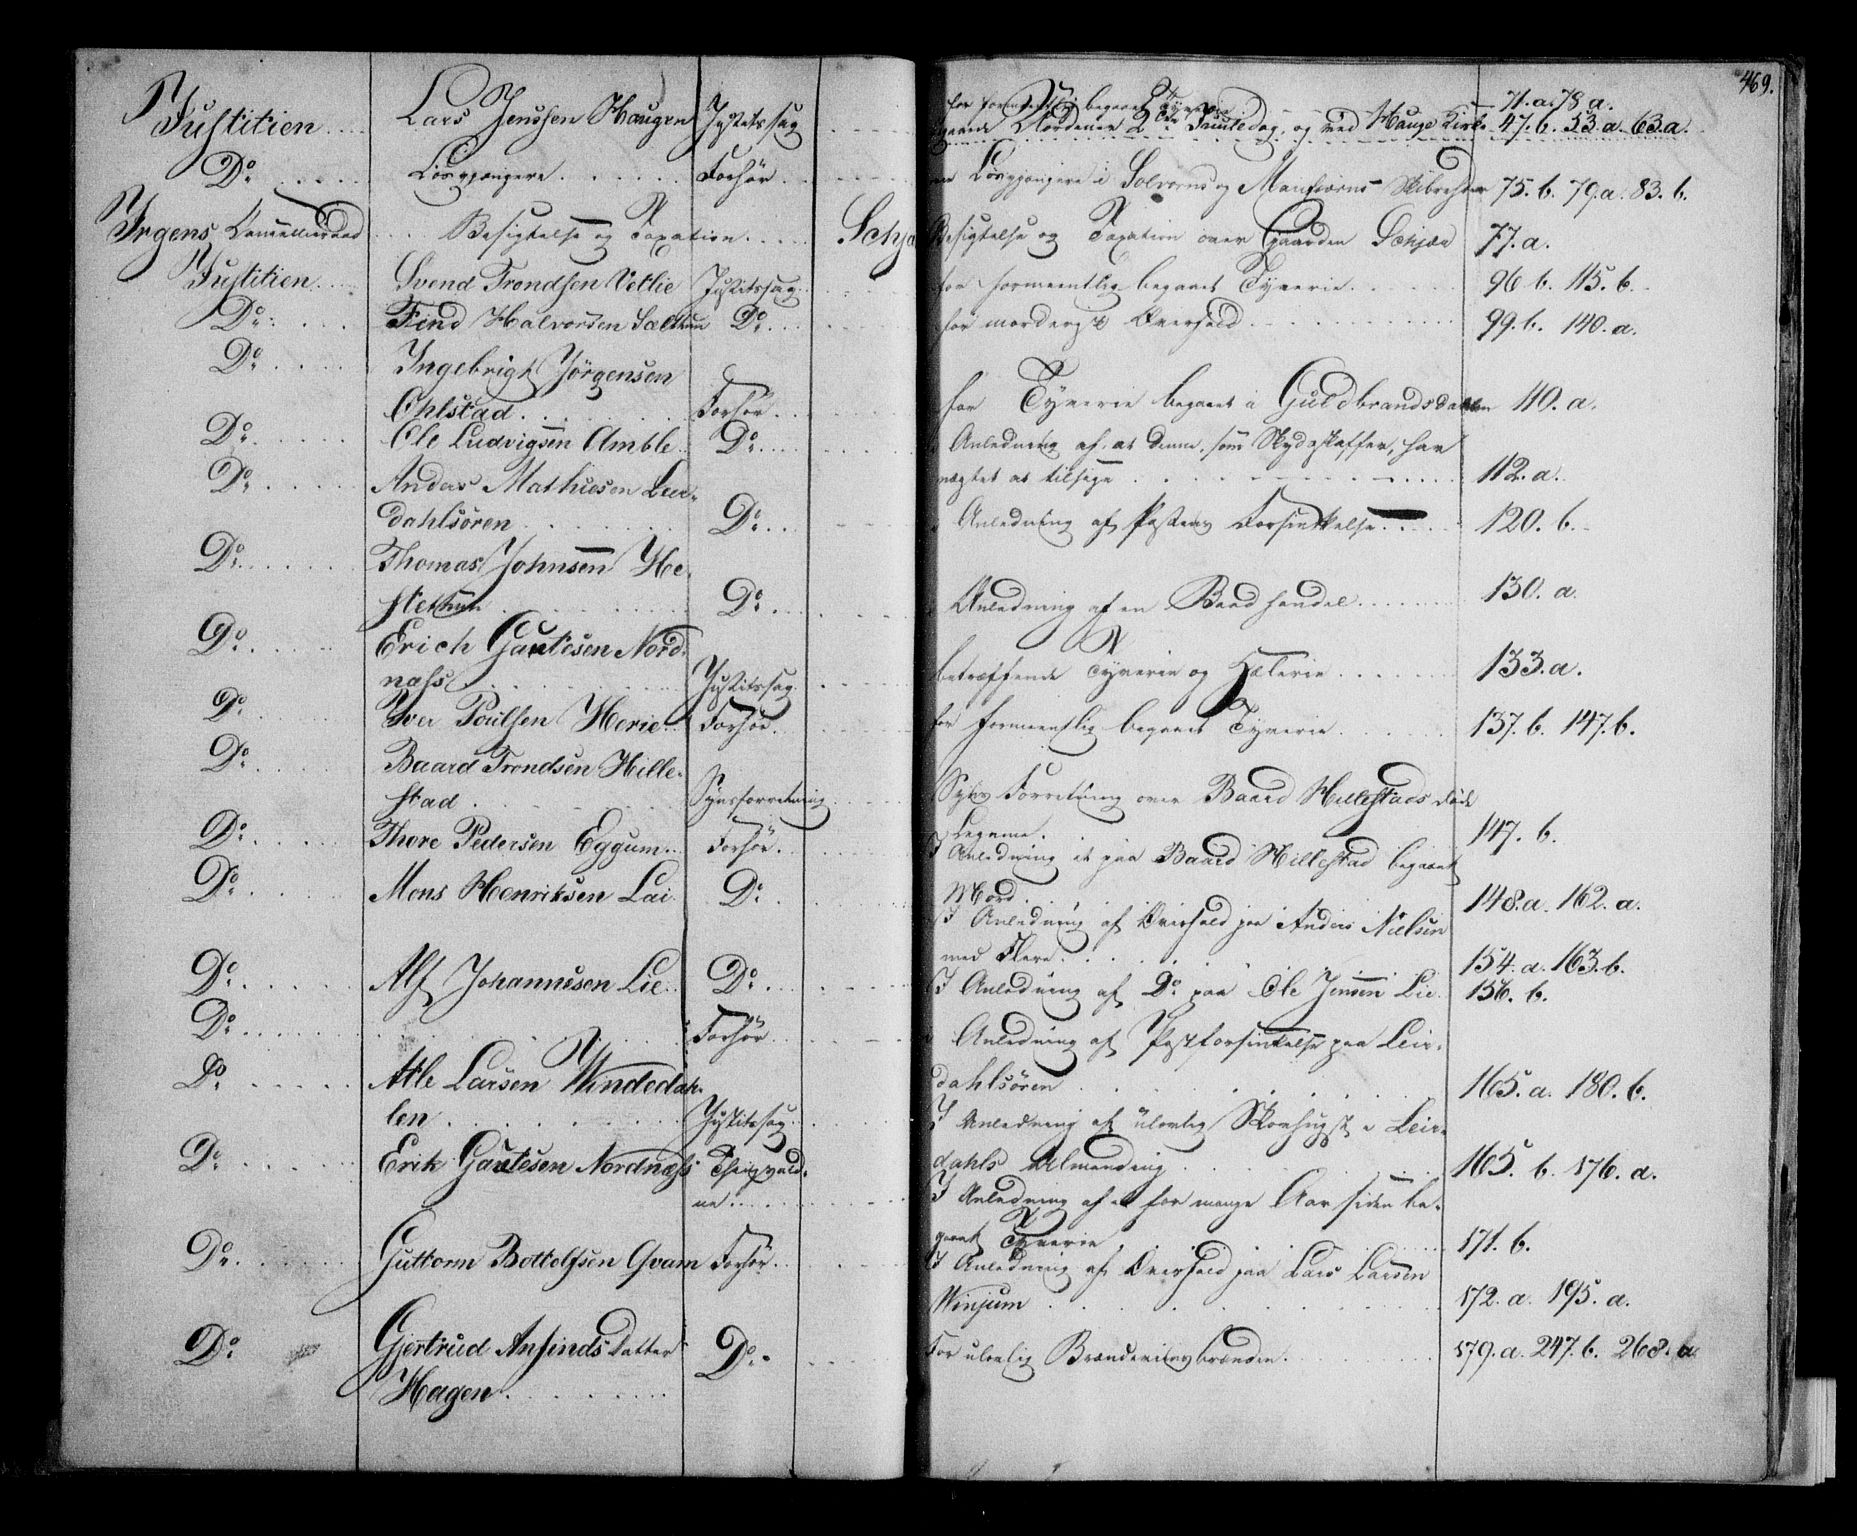 469.
Justitien Lars Jenssen Haugen Justitssag
for formeentlig begaaet Tyverie 71. a. 78 a.
2den Juuledag, og ved Hauge Kirke 47. b. 53. a. 63. a.
Do Løsgjængere Forhör
Løsgjængere i Solvorns og Marifjærens Skibreder 75. b. 79. a. 83. b.
Irgens Cammerraad Besigtelse og Taxation Schjæ
Besigtelse og Taxation over Gaarden Schjæn 77. a.
Justitien Svend Trondsen Vetlie Justitssag
for formeentlig begaaet Tyverie 96 b. 115. b.
Do Find Halvorsen Sælthun Do
for morderisk Overfald 99. b. 140. a.
Do Ingebrigt Jörgensen
Ohlstad Forhör
for Tyverie begaaet i Guldbrandsdalen 110. a.
Do Ole Ludvigsen Amble Do
Anledning af at denne, som Skydsskaffer, har
nægtet at tilsige 112. a.
Do Anders Mathiesen Leir-
dahlsören Do
Anledning af Postens Forsinkelse 120. b.
Do Thomas Johnsen He-
stethun Do
Anledning af en Baadhandel 130. a.
Do Erich Gautesen Nord-
næs Justitssag
betræffende Tyverie og Hælerie 133. a.
Do Iver Poulsen Herie Forhör
for formeentlig begaaet Tyverie 137. b. 147. b.
Do Baard Trondsen Hille-
stad Synsforretning
Syns Forretning over Baard Hillestads döde
Legeme 147. b.
Do Thore Pedersen Eggum Forhör
I Anledning et paa Baard Hillestad begaaet
Mord 148. a. 162. a.
Do Mons Henriksen Lai Do
I Anledning af Overfald paa Anders Nielsen
med Flere 154. a. 163. b.
Do Alf Johannesen Lie Do
I Anledning af Do paa Ole Jensen Lie 156. b.
Do Forhör
Anledning af Postforsinkelse paa Leir-
dahlsören 165. a. 180. b.
Do Atle Larsen Windedah-
len Justitssag
I Anledning af ulovlig Skovhugst i Leir-
dahls Almending 165. b. 176. a.
Do Erik Gautesen Nordnæs Thingvid-
ne
I Anledning af et for mange Aar siden be-
gaaet Tyverie 171. b.
Do Guttorm Bottolfsen Qvam Forhör
I Anledning af Overfald paa Lars Larsen
Winjum 172. a. 195. a.
Do Gjertrud Anfinds Datter Do
Hagen
For ulovlig Brændeviinsbrænden 179. a. 247. b. 268. a.